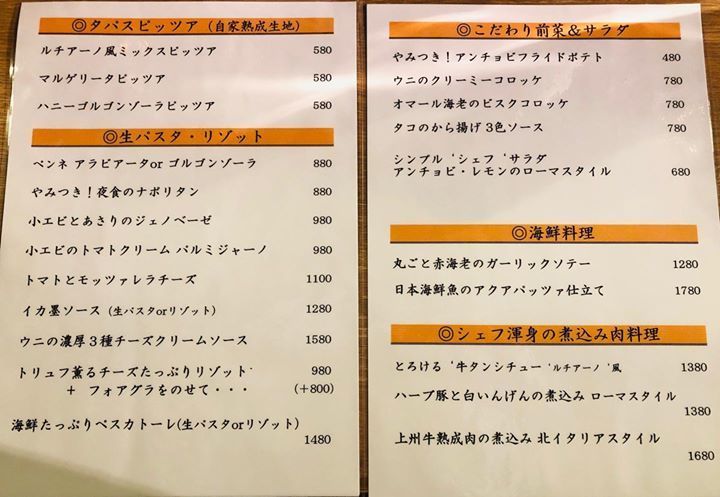 ◎タパスピッツア（自家熟成生地）
ルチアーノ風ミックスピッツア 580
マルゲリータピッツア 580
ハニーゴルゴンゾーラピッツア 580
◎生パスタ・リゾット
ペンネ アラビアータor ゴルゴンゾーラ 880
やみつき！夜食のナポリタン 880
小エビとあさりのジェノベーゼ 980
小エビのトマトクリーム パルミジャーノ 980
トマトとモッツァレラチーズ 1100
イカ墨ソース（生パスタorリゾット） 1280
ウニの濃厚３種チーズクリームソース 1580
トリュフ薫るチーズたっぷりリゾット 980
＋ フォアグラをのせて・・・ （+800）
海鮮たっぷりペスカトーレ(生パスタorリゾット)
1480
◎こだわり前菜＆サラダ
やみつき！アンチョビフライドポテト 480
ウニのクリーミーコロッケ 780
オマール海老のビスクコロッケ 780
タコのから揚げ 3色ソース 780
シンプル‘シェフ‘サラダ
アンチョビ・レモンのローマスタイル 680
◎海鮮料理
丸ごと赤海老のガーリックソテー 1280
日本海鮮魚のアクアパッツァ仕立て 1780
◎シェフ渾身の煮込み肉料理
とろける‘牛タンシチュー‘ルチアーノ‘風 1380
ハーブ豚と白いんげんの煮込み ローマスタイル
1380
上州牛熟成肉の煮込み 北イタリアスタイル
1680